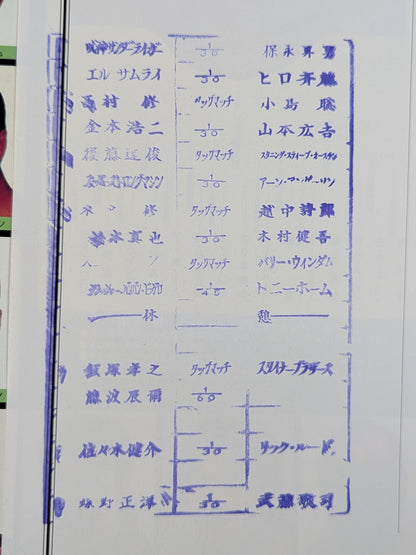 獣神サンダーライガー 1/30 保永昇男
エル サムライ 1/30 ヒロ斉藤
西村 修 タッグマッチ 小島 聡
金本浩二 1/30 山本広吉
後藤達俊 タッグマッチ スタニング・スティーブ・オースチン
1/30 アーン・アンダーソン
タッグマッチ 越中詩郎
橋本真也 1/30 木村健吾
タッグマッチ バリー・ウィンダム
1/45 トニーホーム
休 憩
飯塚孝之 タッグマッチ スタイナーブラザーズ
藤波辰爾 1/60
佐々木健介 1/30 リック・ルード
蝶野正洋 1/30 武藤敬司